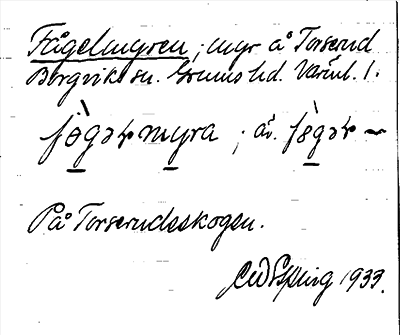 Fågelmyren, myr å Torserud
Borgviks sn. Grums hd. Värml. l.
fò̱gərmy̱ra ; äv. fò̱gər ~
På Torserudsskogen.
1933.